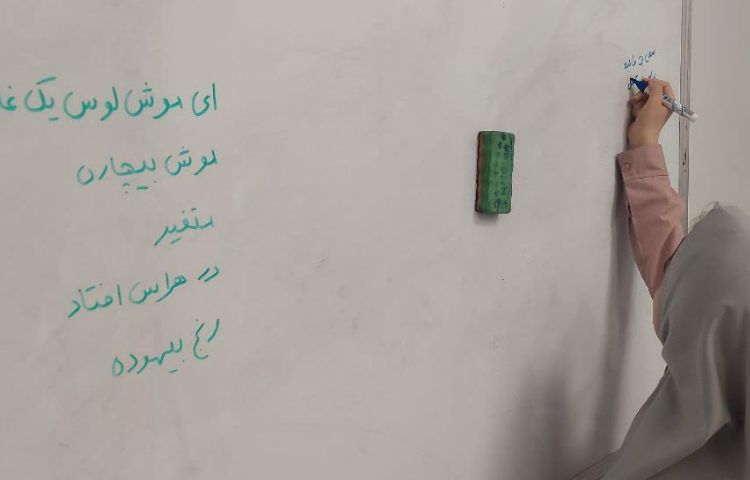 ای موش لوس یک غا
موش بیچاره
متغیر
در هراس افتاد
رنج بیهوده